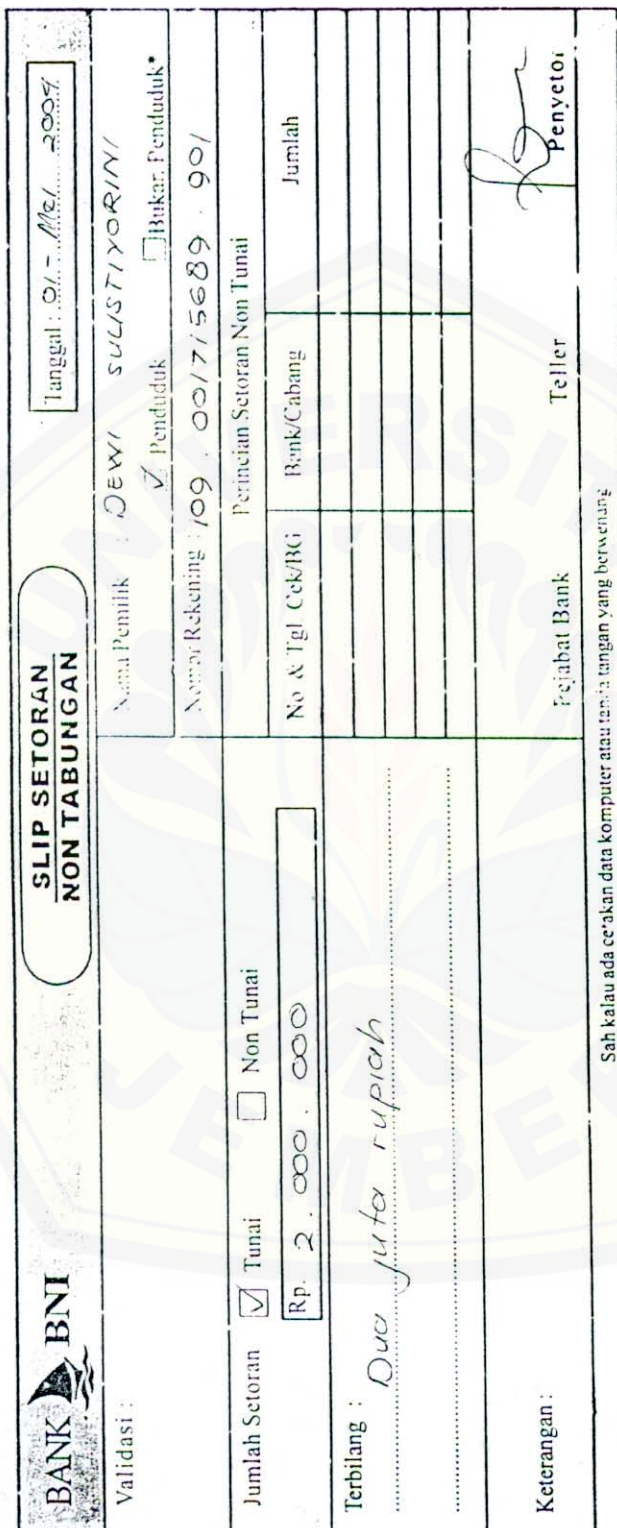 BANK BNI
SLIP SETORAN
NON TABUNGAN
Tanggal : 01 - Mei 2004
Validasi :
Nama Pemilik : DEWI SULISTIYORINI
Penduduk Bukan Penduduk*
Nomor Rekening : 109 . 001715689 . 901
Jumlah Setoran Tunai Non Tunai
Rp. 2 . 000 . 000
Perincian Setoran Non Tunai
No & Tgl Cek/BG Bank/Cabang Jumlah
Terbilang : Dua juta rupiah
Keterangan :
Pejabat Bank Teller Penyetor
Sah kalau ada cetakan data komputer atau tanda tangan yang berwenang
UNIVERSIT
JEMBE